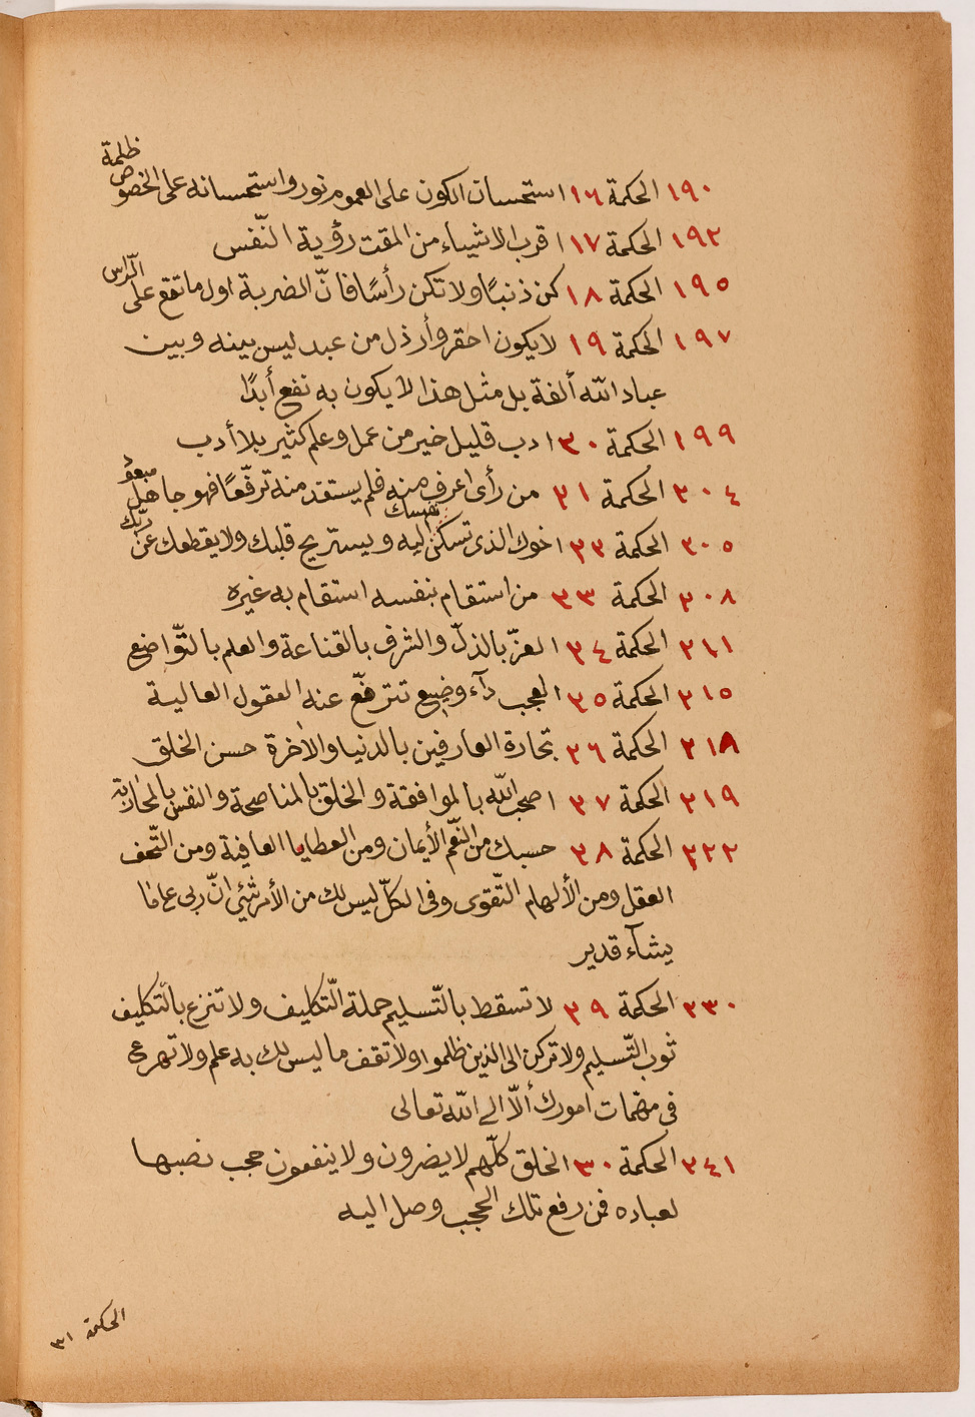 ظلمة
١٩٠ الحكمة ١٦ استحسان الكون على العموم نور واستحسانه على الخصوص
١٩٢ الحكمة ١٧ اقرب الاشياء من المقت رؤية النّفس
الرّاس
١٩٥ الحكمة ١٨ كن ذنبًا ولا تكن رأسًا فانّ الضربة اول ما تقع على
١٩٧ الحكمة ١٩ لا يكون احقر وأرذل من عبد ليس بينه وبين
عباد الله ألفة بل مثل هذا لا يكون به نفع أبدًا
١٩٩ الحكمة ٢٠ ادب قليل خير من عمل وعلم كثير بلا أدب
مبعود
٢٠٤ الحكمة ٢١ من رأى اعرف منه فلم يستفد منه ترفّعًا فهو جاهل
نفسك ربّك
٢٠٥ الحكمة ٢٢ اخوك الذى تسكن اليه ويستريح قلبك ولا يقطعك عن
٢٠٨ الحكمة ٢٣ من استقام بنفسه استقام به غيره
٢١١ الحكمة ٢٤ العزّ بالذلّ والشرف بالقناعة والعلم بالتّواضع
٢١٥ الحكمة ٢٥ العجب دآء وضيع تترفّع عنه العقول العالية
٢١٨ الحكمة ٢٦ تجارة العارفين بالدنيا والآخرة حسن الخلق
٢١٩ الحكمة ٢٧ اصحب الله بالموافقة والخلق بالمناصحة والنفس بالمحاربة
٢٢٢ الحكمة ٢٨ حسبك من النّعم الأيمان ومن العطايا العافية ومن التّحف
العقل ومن الألهام التّقوى وفى الكلّ ليس لك من الأمر شئ انّ ربى على ما
يشآء قدير
٢٣٠ الحكمة ٢٩ لا تسقط بالتّسليم حملة التّكاليف ولا تنزع بالتّكليف
ثوب التّسليم ولا تركن الى الذين ظلموا ولا تقف ما ليس لك به علم ولا تهرع
فى مهمّات امورك ألّا الى الله تعالى
٢٤١ الحكمة ٣٠ الخلق كلّهم لا يضرون ولا ينفعون حجب نصبها
لعباده فمن رفع تلك الحجب وصل اليه
الحكمة ٣١